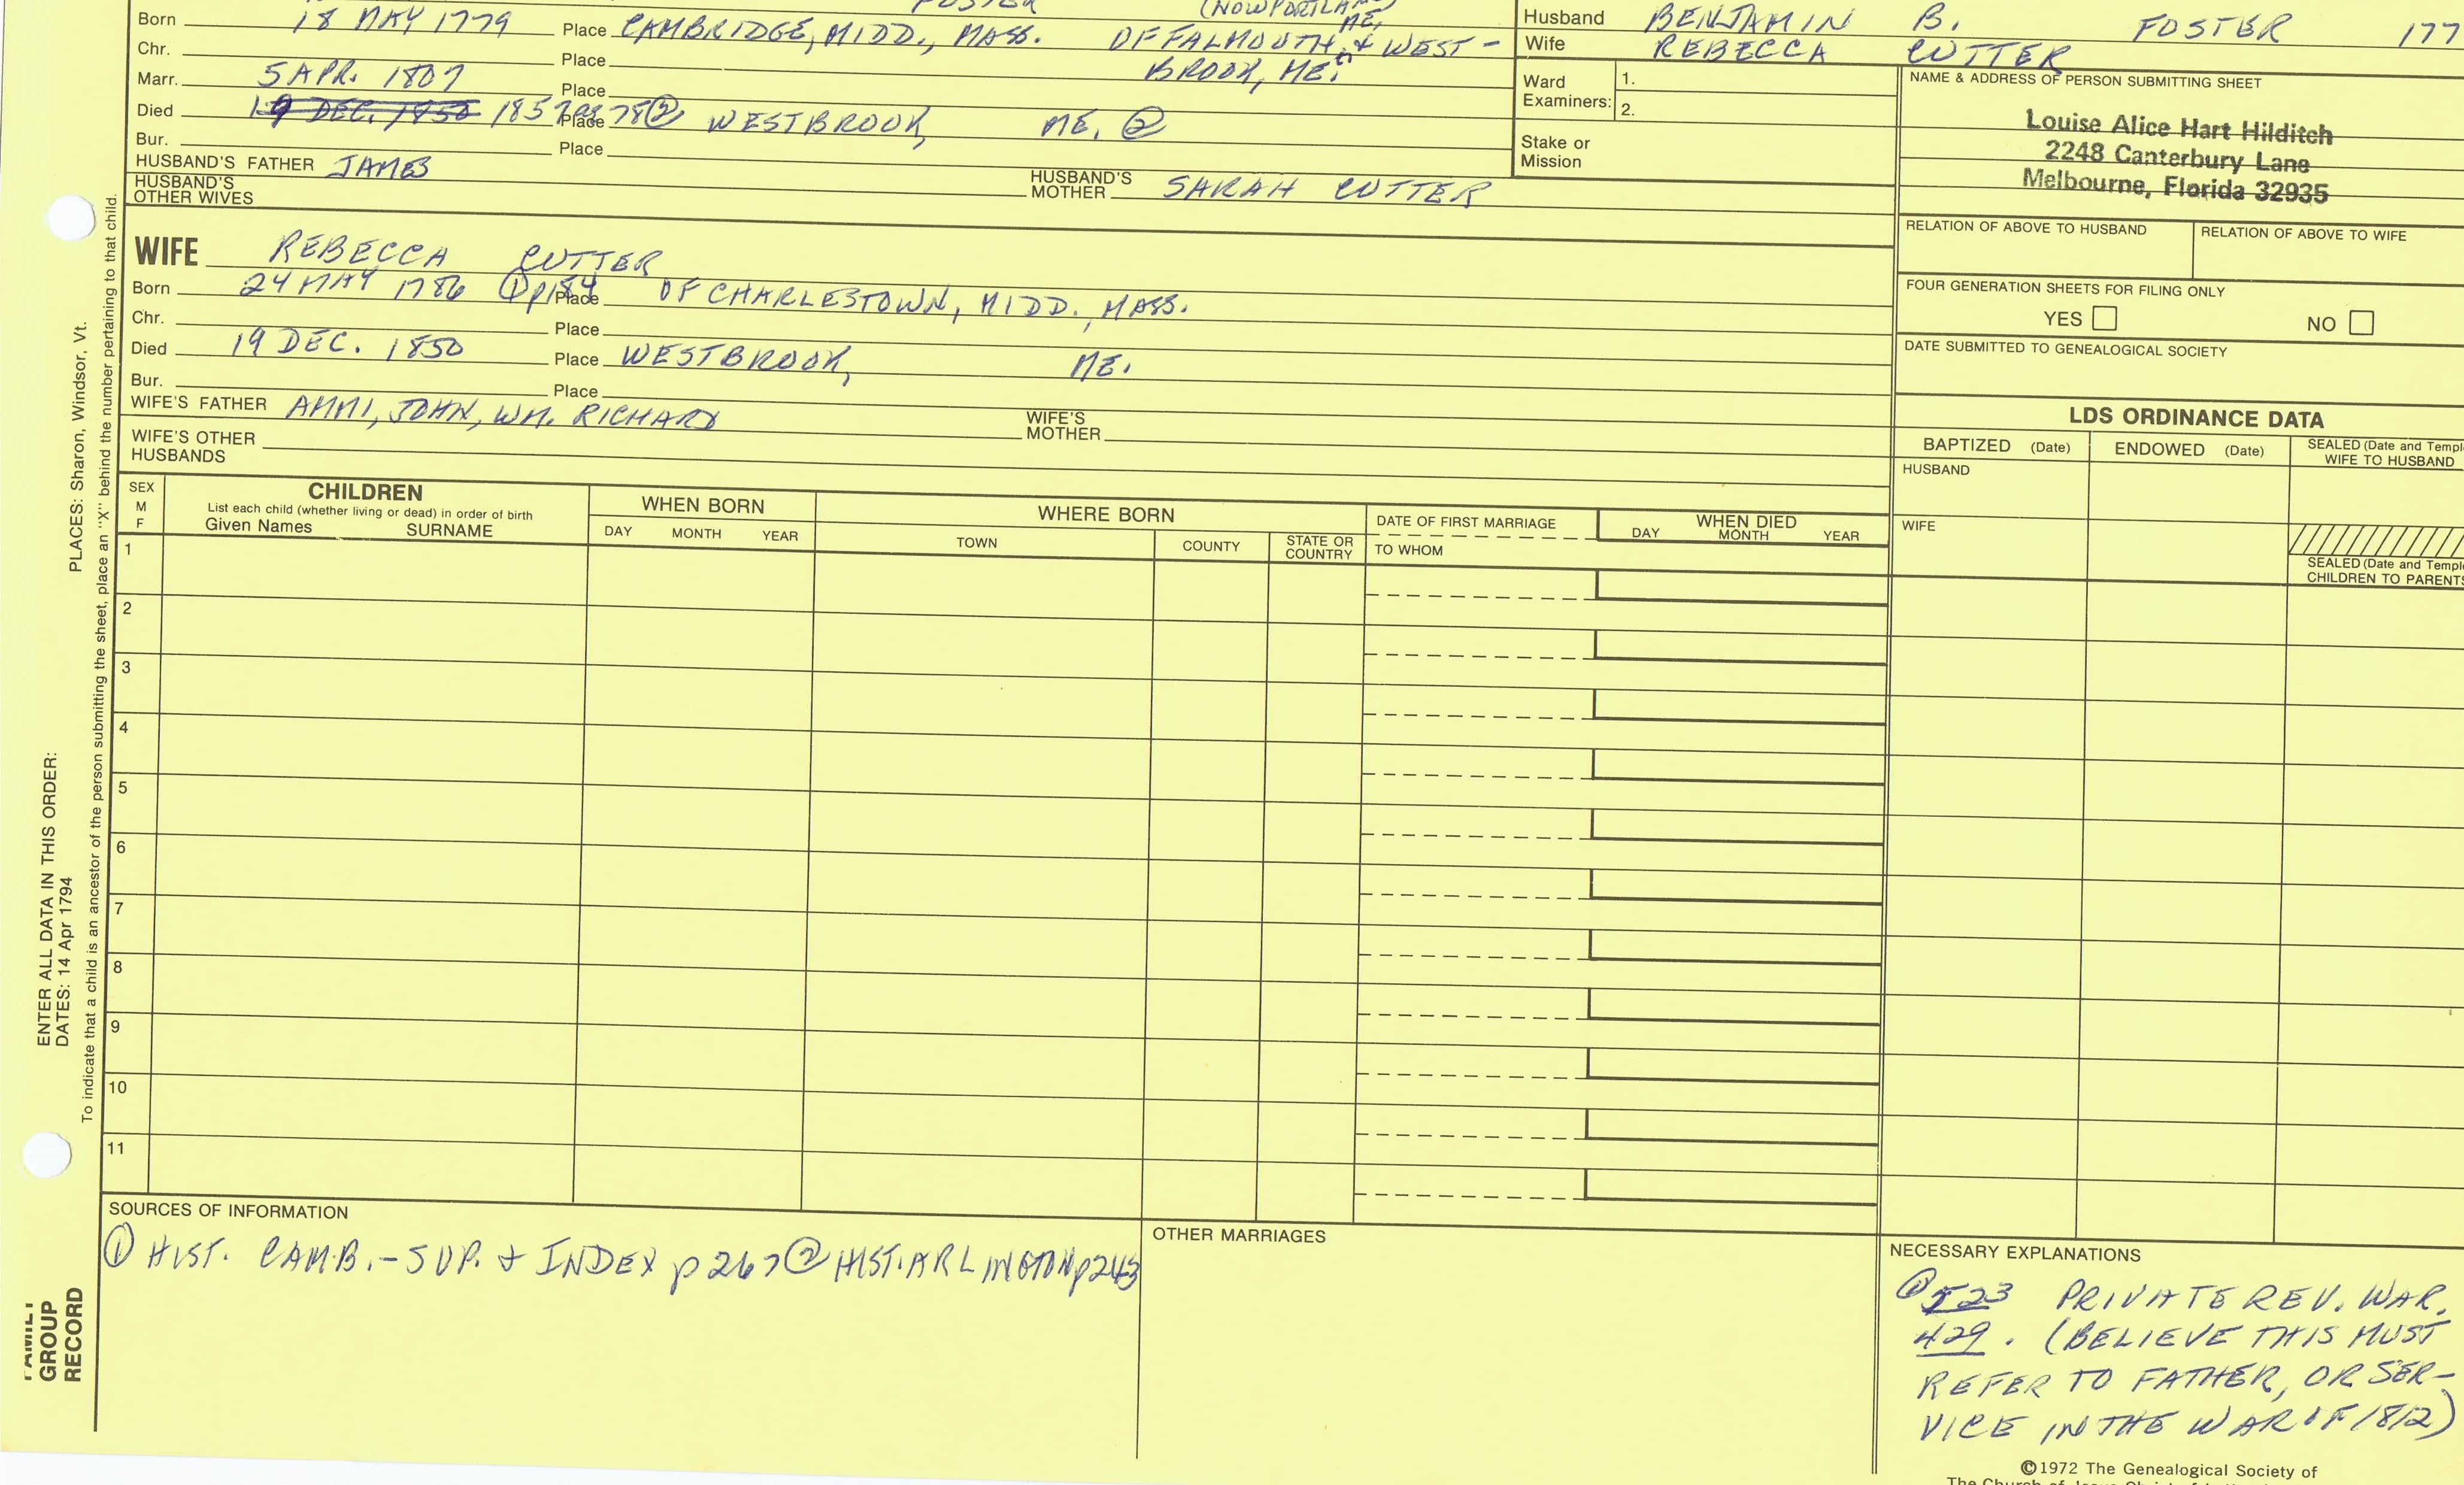 FOSTER (NOW PORTLAND ME.
Born 18 MAY 1779 Place CAMBRIDGE, MIDD., MASS. OF FALMOUTH, & WEST-
Chr. Place BROOK, ME.
Marr. 5 APR. 1807 Place
Died 19 DEC. 1850 1857 ag 78 ② Place WESTBROOK, ME. ②
Bur. Place
HUSBAND'S FATHER JAMES HUSBAND'S MOTHER SARAH CUTTER
HUSBAND'S OTHER WIVES
WIFE REBECCA CUTTER
Born 24 MAY 1786 ① p184 Place OF CHARLESTOWN, MIDD., MASS.
Chr. Place
Died 19 DEC. 1850 Place WESTBROOK, ME.
Bur. Place
WIFE'S FATHER AMMI, JOHN, WM. RICHARD WIFE'S MOTHER
WIFE'S OTHER HUSBANDS
Husband BENJAMIN B. FOSTER 177
Wife REBECCA CUTTER
Ward Examiners: 1.
2.
Stake or Mission
NAME & ADDRESS OF PERSON SUBMITTING SHEET
Louise Alice Hart Hilditch
2248 Canterbury Lane
Melbourne, Florida 32935
RELATION OF ABOVE TO HUSBAND RELATION OF ABOVE TO WIFE
FOUR GENERATION SHEETS FOR FILING ONLY
YES NO
DATE SUBMITTED TO GENEALOGICAL SOCIETY
LDS ORDINANCE DATA
BAPTIZED (Date) ENDOWED (Date) SEALED (Date and Templ
WIFE TO HUSBAND
HUSBAND
WIFE
SEALED (Date and Templ
CHILDREN TO PARENTS
SEX
M
F
CHILDREN
List each child (whether living or dead) in order of birth
Given Names SURNAME
WHEN BORN
DAY MONTH YEAR
WHERE BORN
TOWN COUNTY STATE OR COUNTRY
DATE OF FIRST MARRIAGE
TO WHOM
WHEN DIED
DAY MONTH YEAR
1
2
3
4
5
6
7
8
9
10
11
SOURCES OF INFORMATION
① HIST. CAMB. - SUP. & INDEX p 267 ② HIST. ARLINGTON p243
OTHER MARRIAGES
NECESSARY EXPLANATIONS
523 PRIVATE REV. WAR.
429. (BELIEVE THIS MUST
REFER TO FATHER, OR SER-
VICE IN THE WAR OF 1812)
©1972 The Genealogical Society of
PLACES: Sharon, Windsor, Vt.
ENTER ALL DATA IN THIS ORDER:
DATES: 14 Apr 1794
To indicate that a child is an ancestor of the person submitting the sheet, place an "X" behind the number pertaining to that child.
FAMILY
GROUP
RECORD